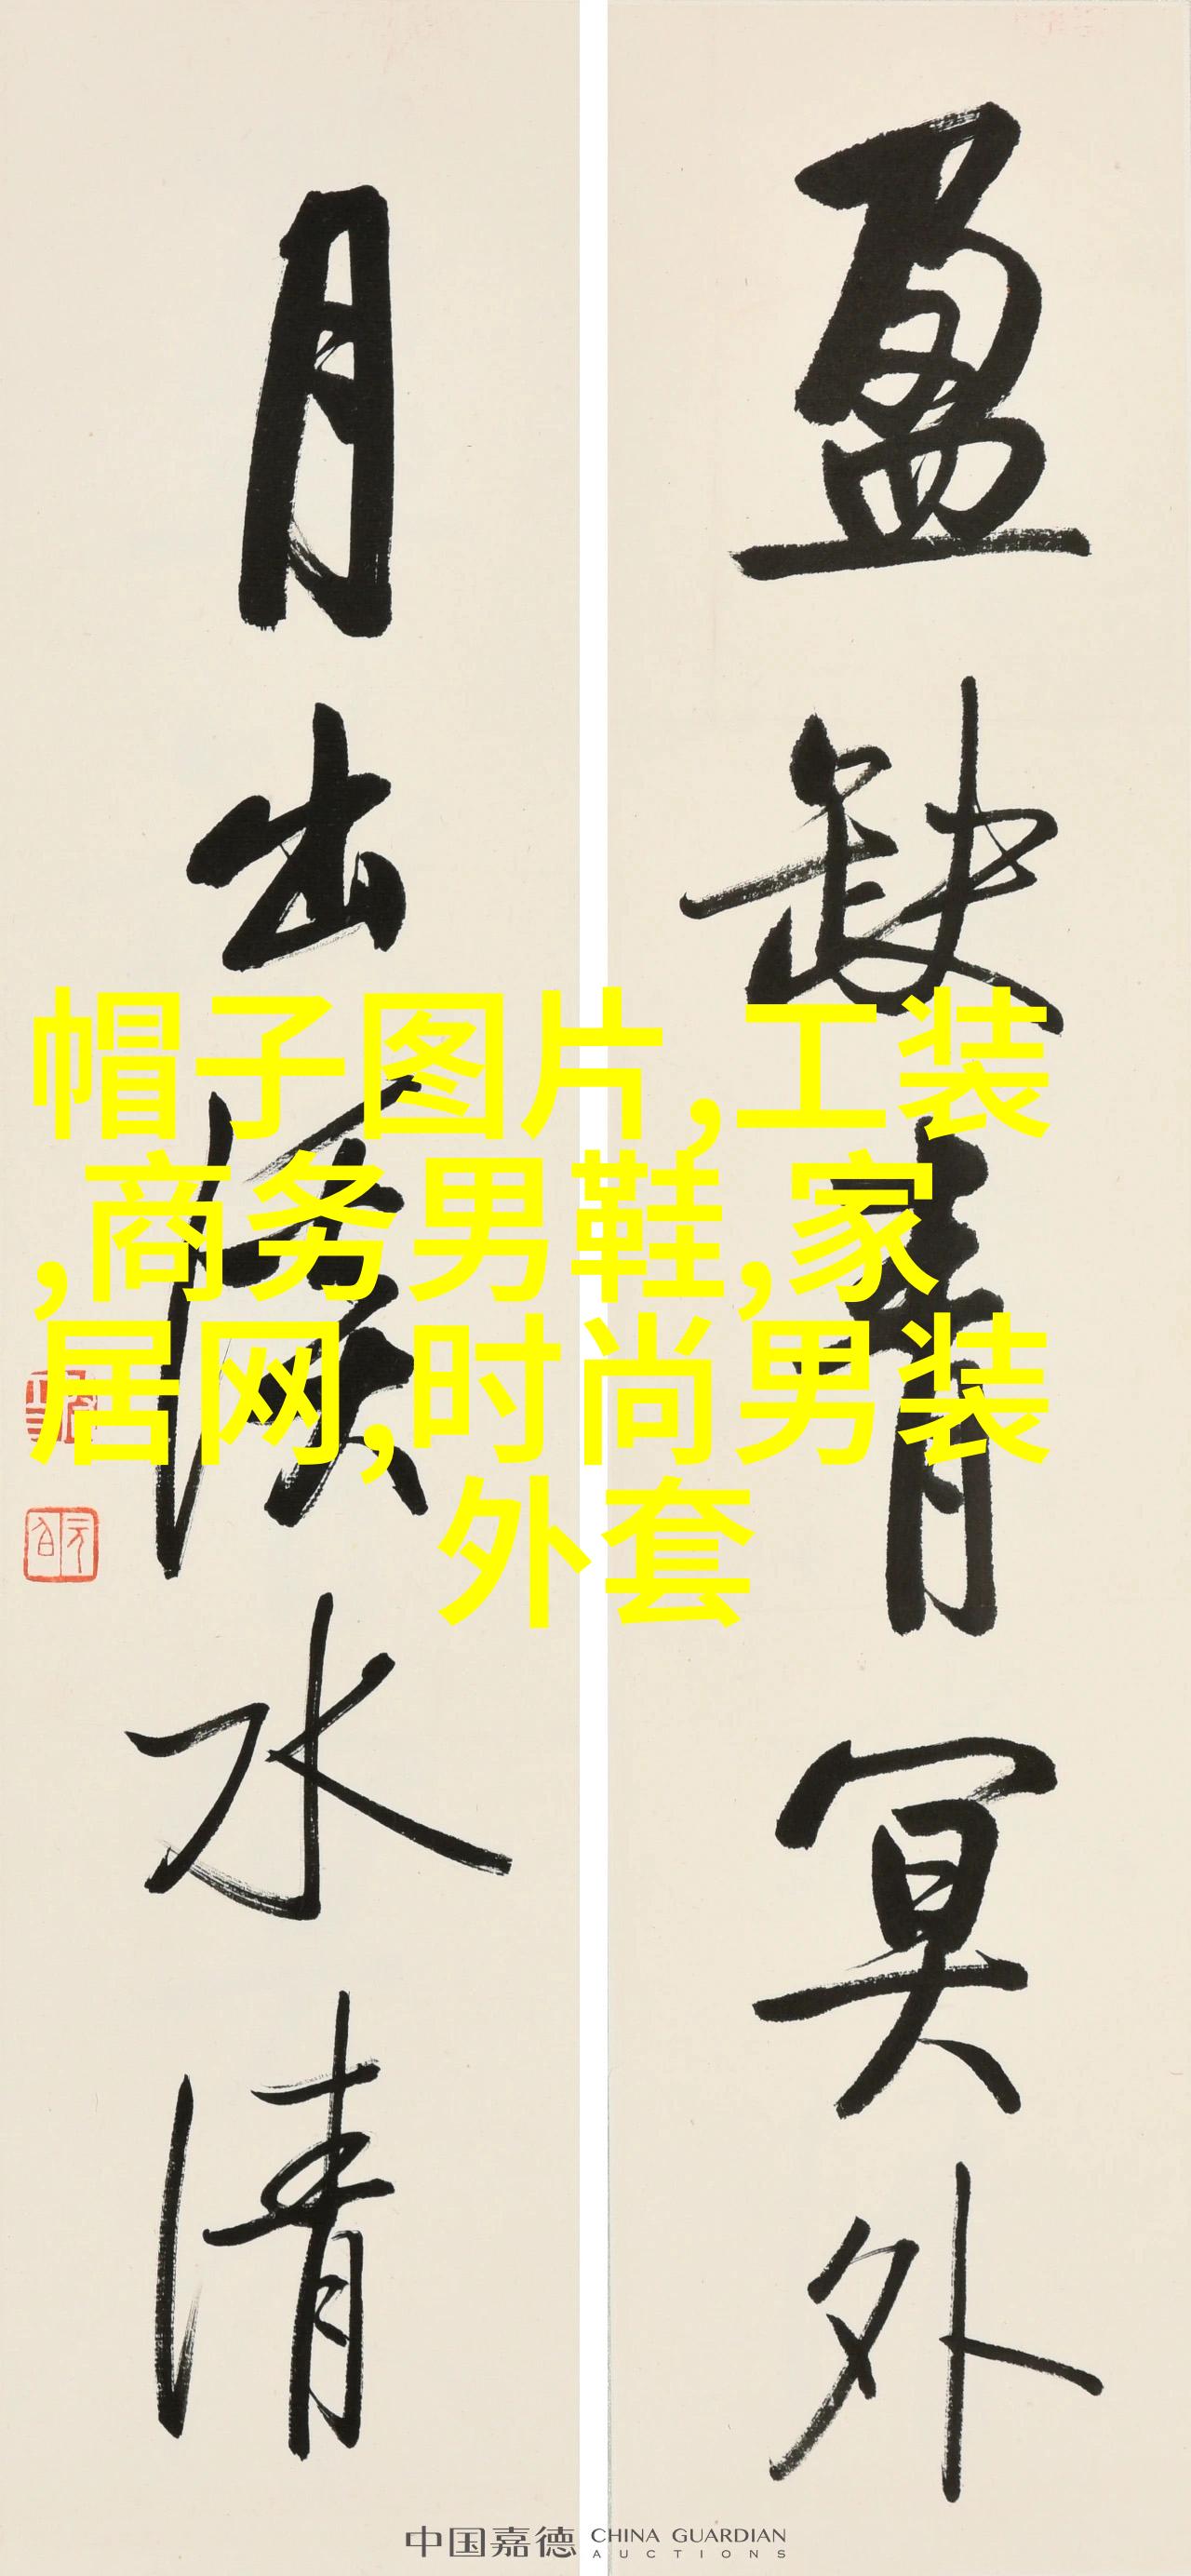 盈缺青冥外
月出溪水清
帽子图片,工装
,商务男鞋,家
居网,时尚男装
外套
中国嘉德 CHINA GUARDIAN
AUCTIONS